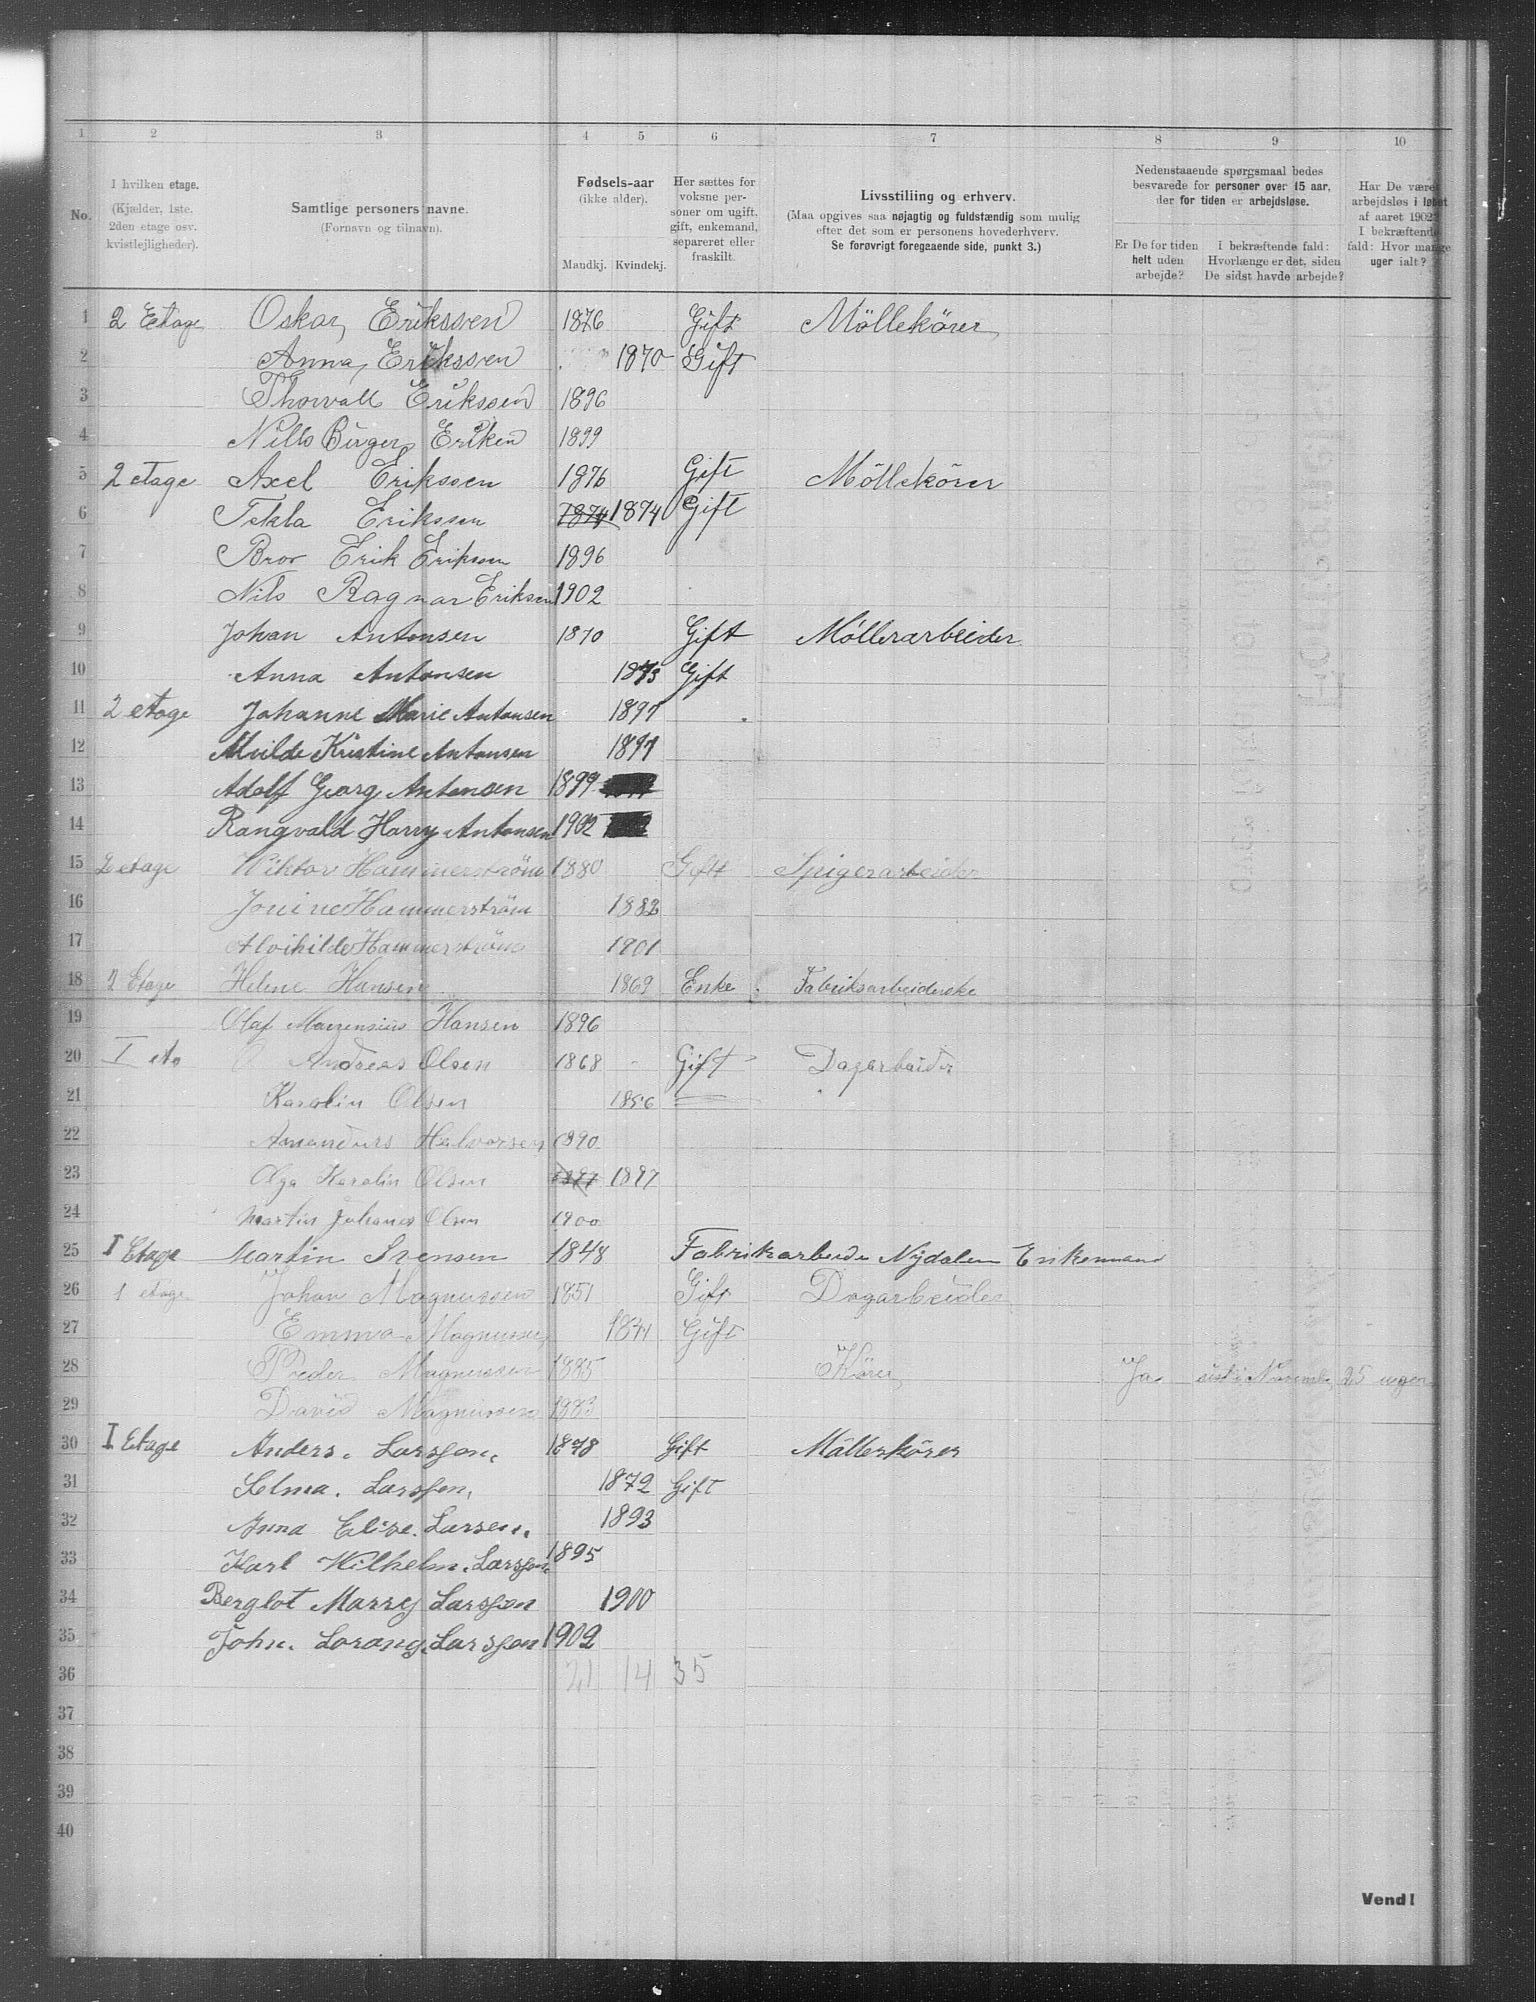 1 2 3 4 5 6 7 8 9 10
No. I hvilken etage. (Kjælder, 1ste. 2den etage osv. kvistlejligheder). Samtlige personers navne. (Fornavn og tilnavn). Fødsels-aar (ikke alder). Mandkj. Kvindekj. Her sættes for voksne personer om ugift, gift, enkemand, separeret eller fraskilt. Livsstilling og erhverv. (Maa opgives saa nøjagtig og fuldstændig som mulig efter det som er personens hovederhverv. Se forøvrigt foregaaende side, punkt 3.) Nedenstaaende spørgsmaal bedes besvarede for personer over 15 aar, der for tiden er arbejdsløse. Er De for tiden helt uden arbejde? I bekræftende fald: Hvorlænge er det, siden De sidst havde arbejde? Har De været arbejdsløs i løbet af aaret 1902? I bekræftende fald: Hvor mange uger ialt?
1 2 Etage Oskar Erikssen 1876 Gift Möllekörer
2 Anna Erikssen 1870 Gift
3 Thorvall Erikssen 1896
4 Nills Birger Eriken 1899
5 2 etage Axel Erikssen 1876 Gift Möllekörer
6 Tekla Erikssen 1874 1874 Gift
7 Bror Erik Eriksen 1896
8 Nils Ragnar Eriksen 1902
9 Johan Antonsen 1870 Gift Møllerarbeider
10 Anna Antonsen 1873 Gift
11 2 etage Johanne Marie Antonsen 1897
12 Kristine Antonsen 1897
13 Adolf Georg Antonsen 1899
14 Rangvald Harry Antonsen 1902
15 2 etage Wiktor Hammerström 1880 Gift Spigerarbeider
16 Jouine Hammerström 1882
17 Alvihilde Hammerström 1901
18 2 Etage Helene Hansen 1869 Enke Fabriksarbeiderske
19 Olaf Hansen 1896
20 I eta Andreas Olsen 1868 Gift Dagarbaider
21 Karolin Olsen 1856
22 Amandus Halvorsen 1890
23 Olga Karolin Olsen 1897 1897
24 Martin Johanes Olsen 1900
25 I Etage Martin Svensen 1848 Fabrikarbeide Nydalen Enkemand
26 1 etage Johan Magnussen 1851 Gift Dagarbeider
27 Emma Magnussen 1841 Gift
28 Peder Magnussen 1885 Kører Ja 25 uger
29 David Magnussen 1883
30 I Etage Anders. Larsson. 1878 Gift Möllerkörer
31 Selma. Larsson. 1872 Gift
32 Anna Elise. Larsen. 1893
33 Karl Wilhelm. Larsson. 1895
34 Berglot Marry Larsson 1900
35 John. Lorang. Larsson 1902
36 21 14 35
37
38
39
40
Vend!